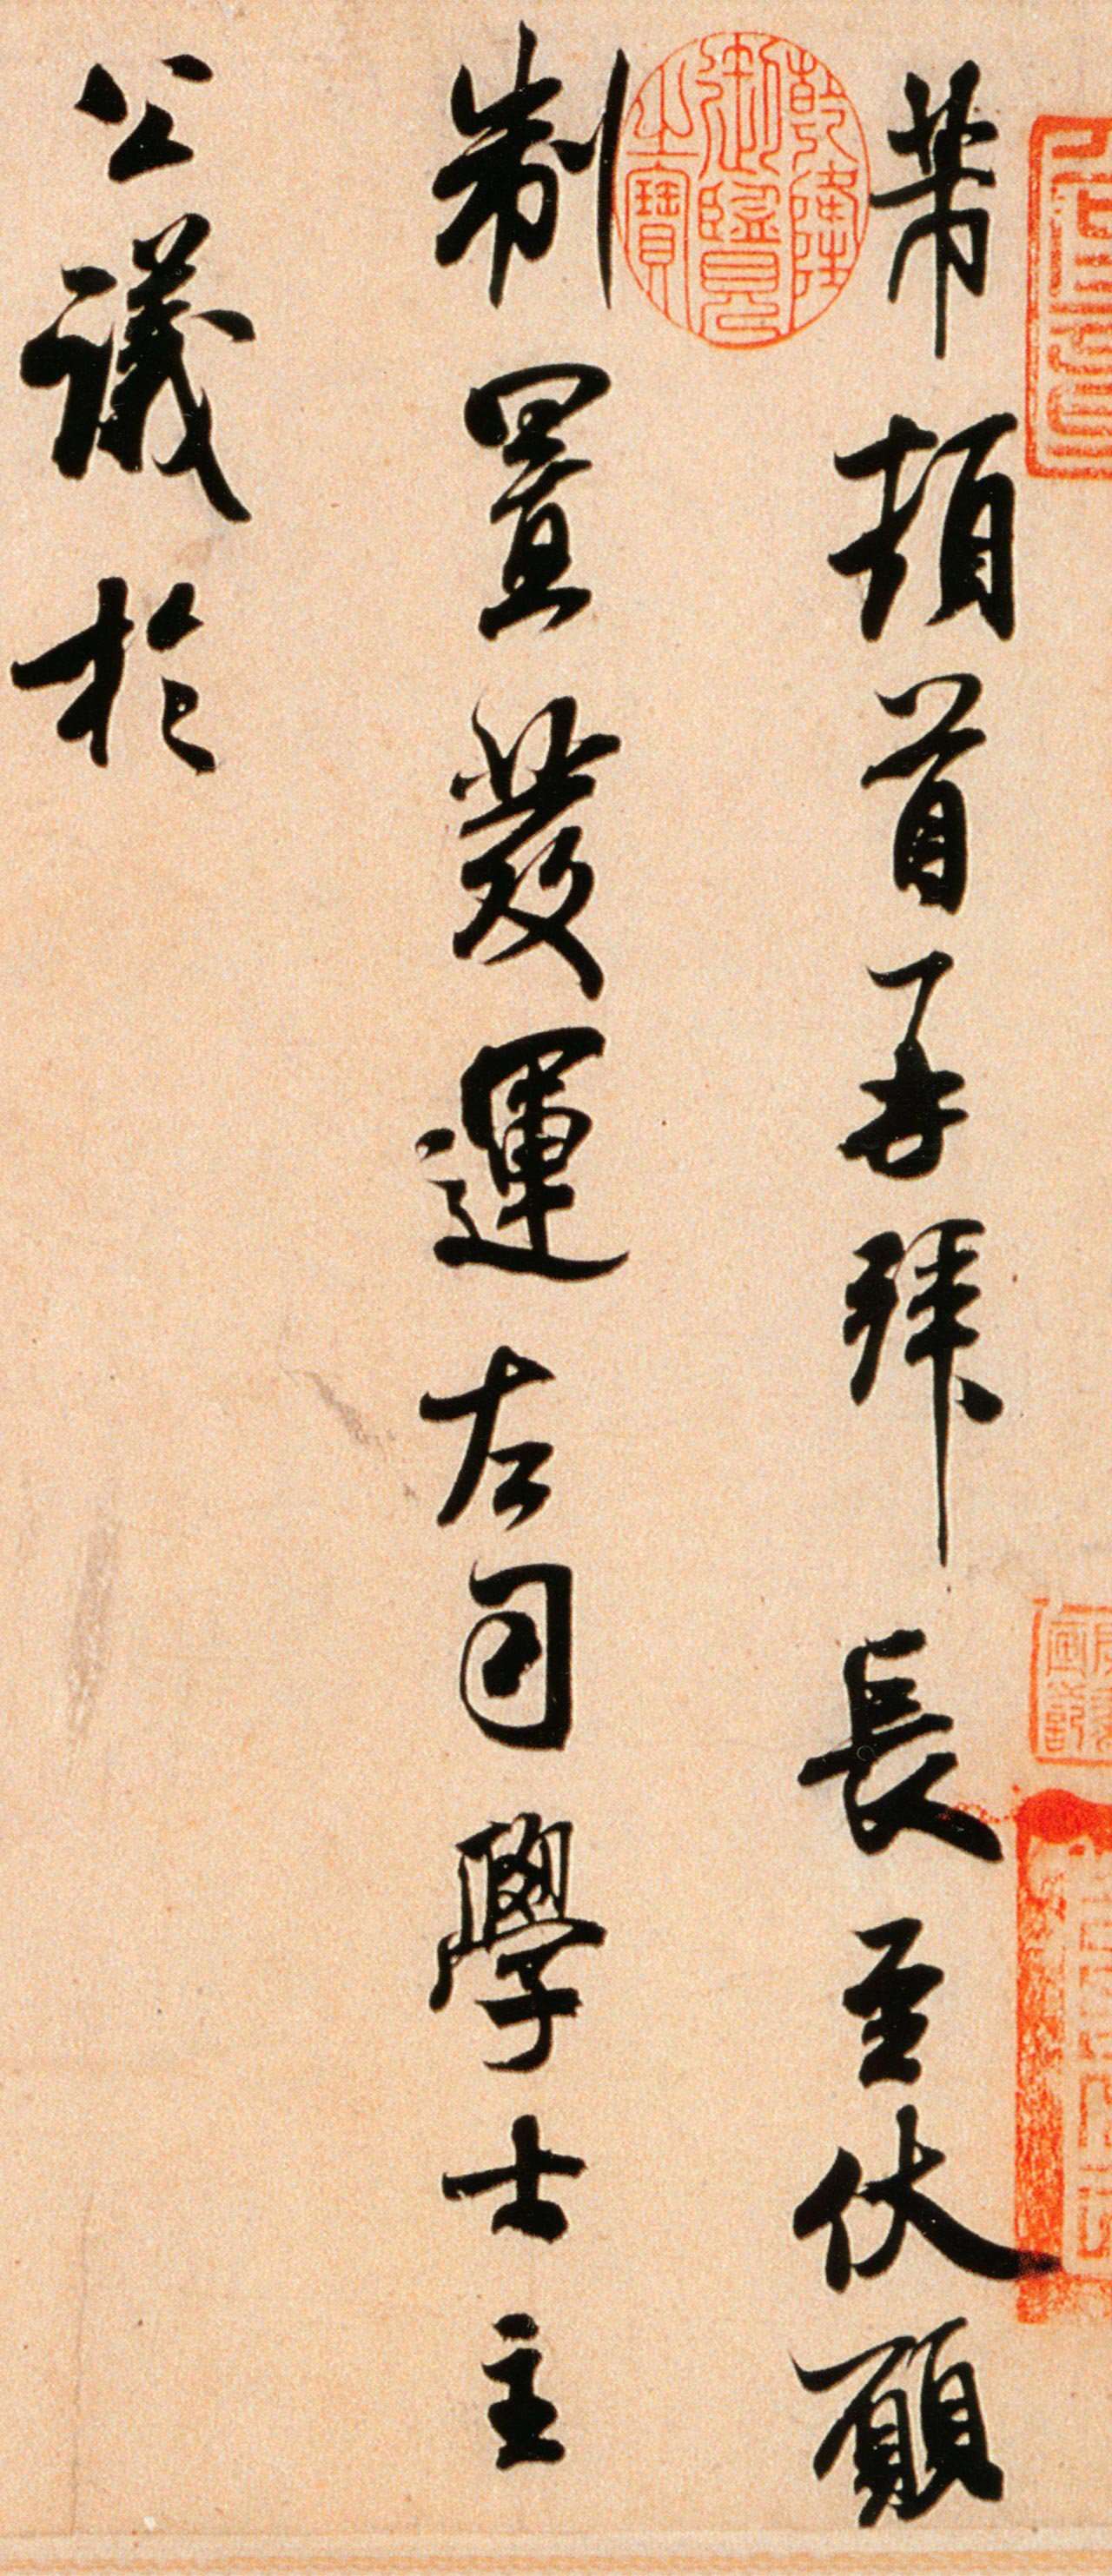 芾頓首再拜長至伏願
乾隆御覽之寶
制置發運左司學士主
公議於